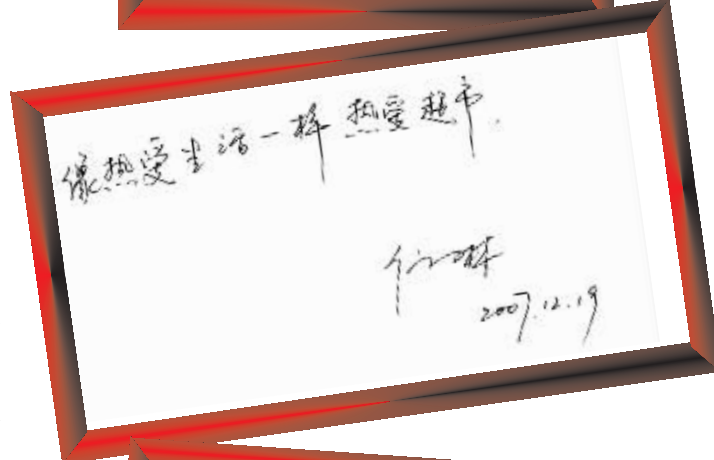 像热爱生活一样 热爱超市.
2007.12.19